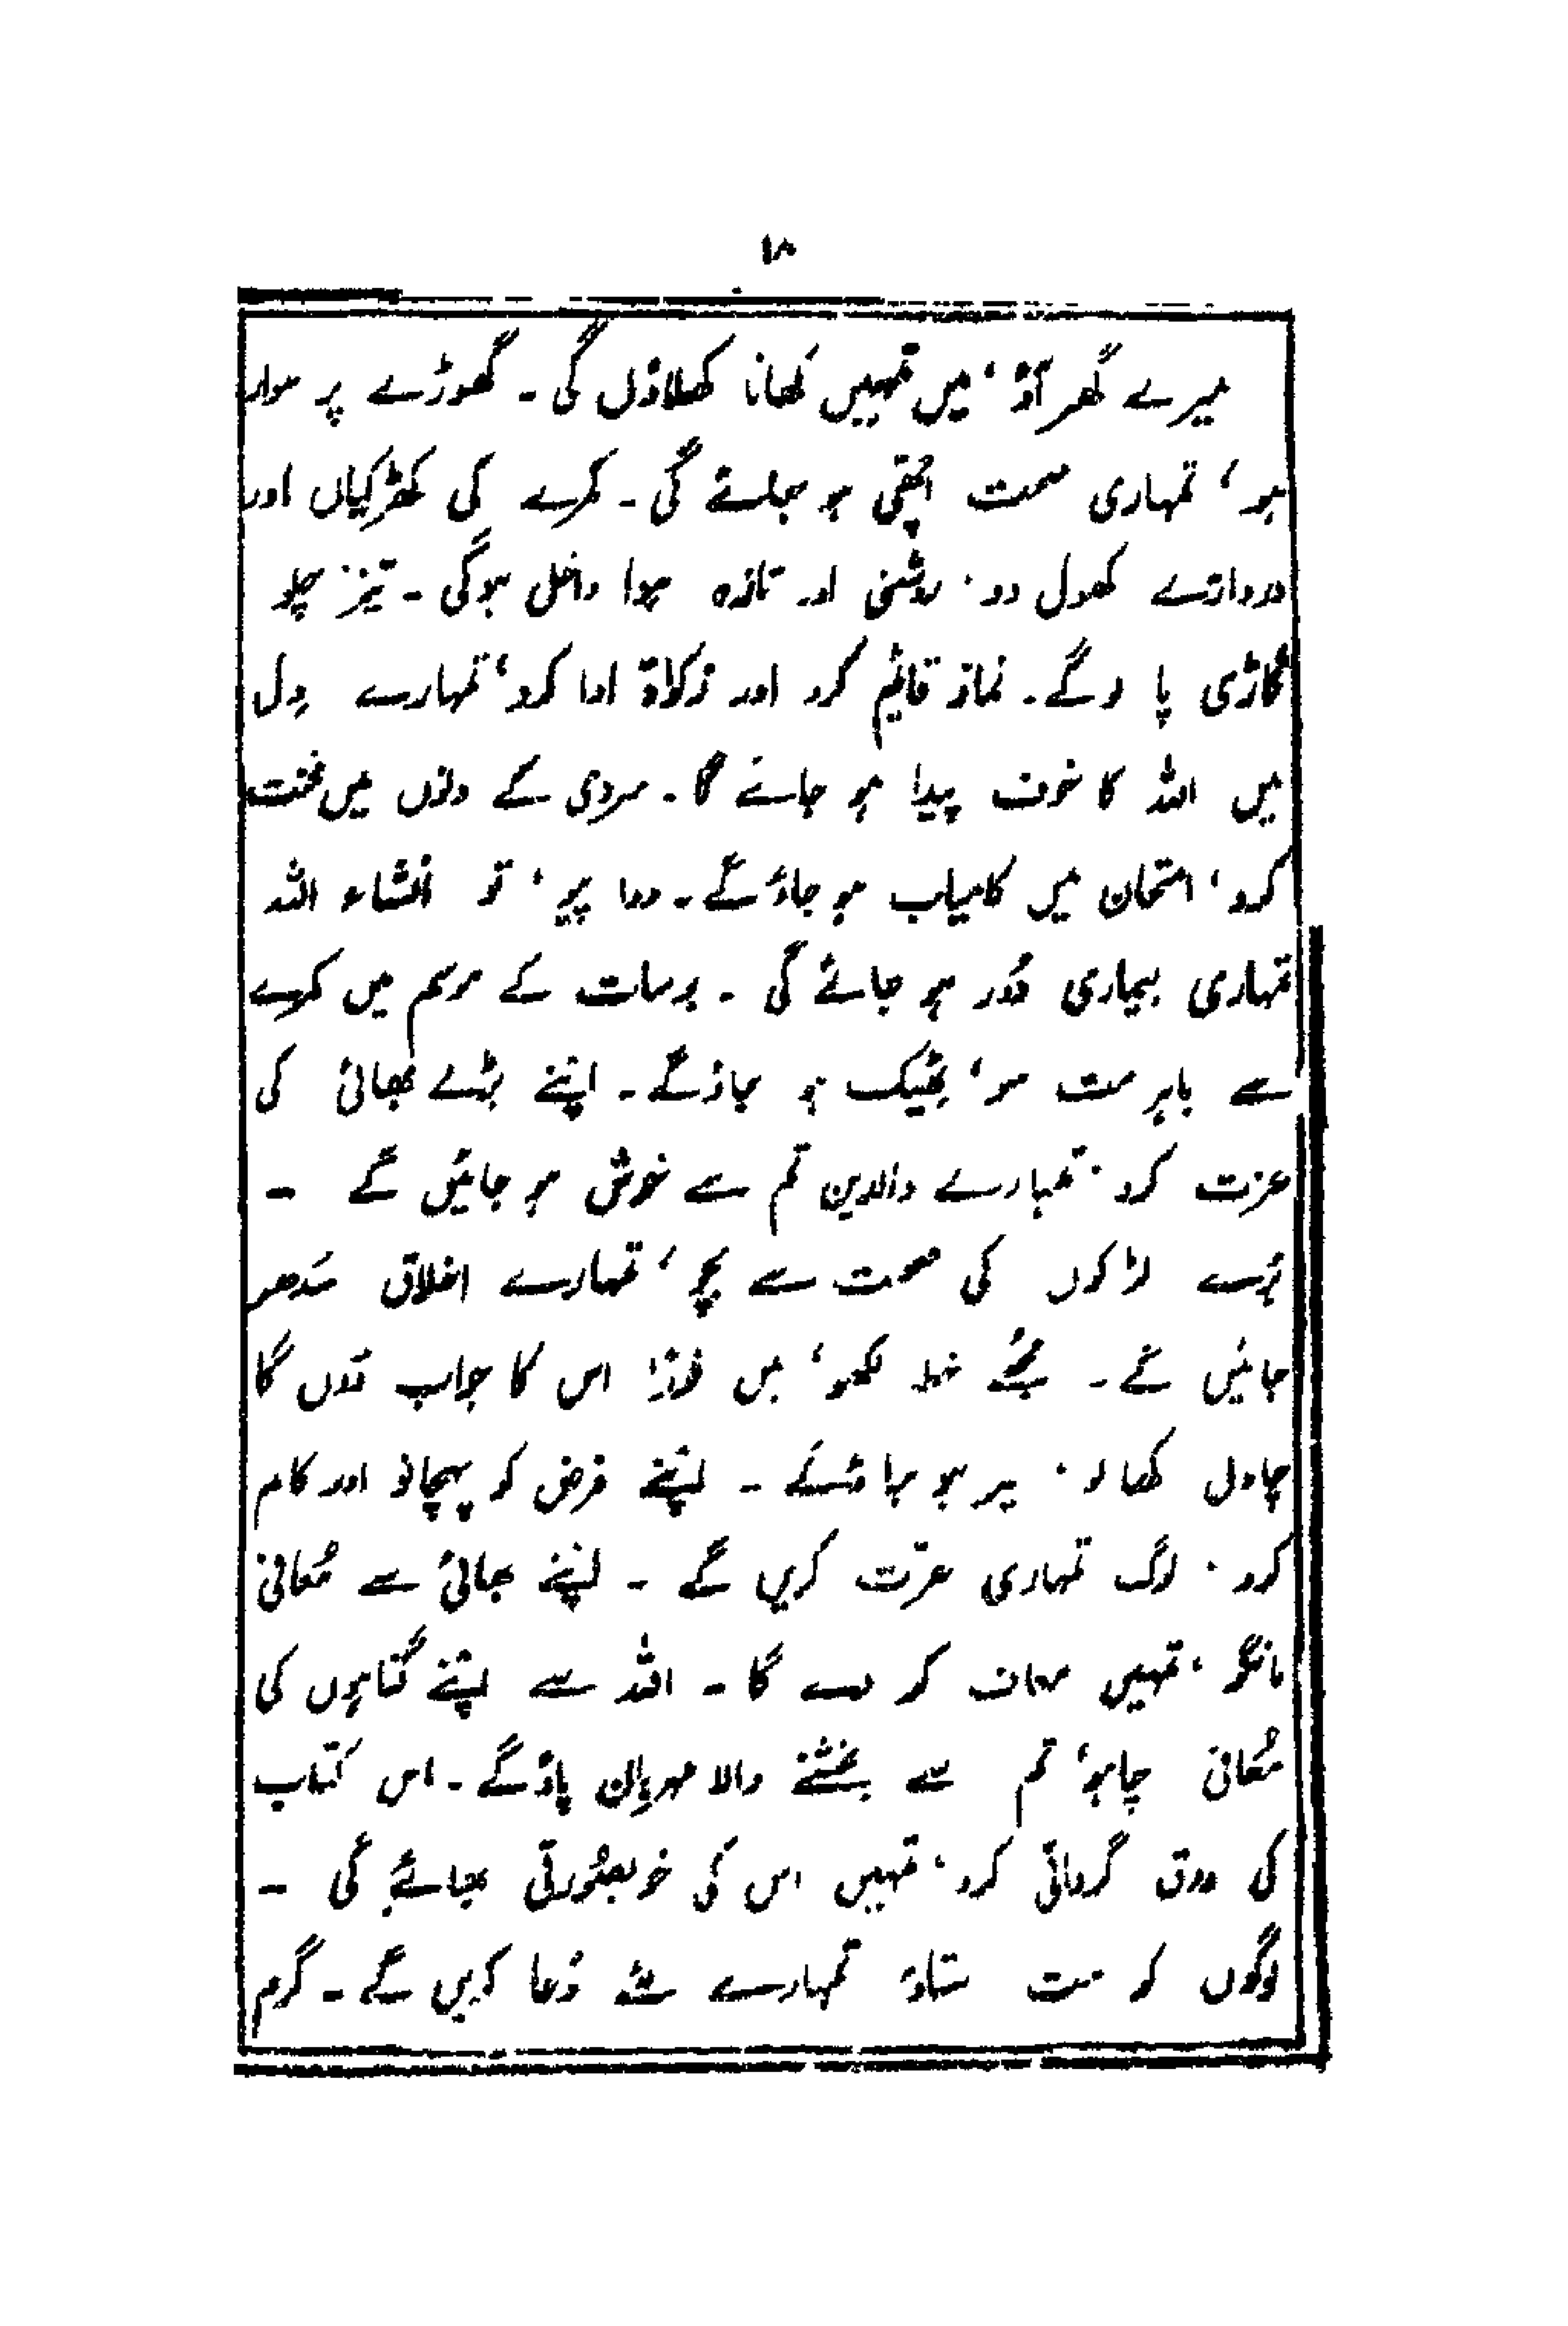 ۱۸
میرے گھر آؤ، میں تمہیں کھانا کھلاؤں گی۔ گھوڑے پر سوار
ہو، تمہاری صحت اچھی ہو جائے گی۔ کمرے کی کھڑکیاں اور
دروازے کھول دو، روشنی اور تازہ ہوا داخل ہوگی۔ تیز چلو
گاڑی پا لوگے۔ نماز قائم کرو اور زکواة ادا کرو، تمہارے دِل
میں اللہ کا خوف پیدا ہو جائے گا۔ سردی کے دنوں میں محنت
کرو، امتحان میں کامیاب ہو جاؤ گے۔ دوا پیو، تو انشاء اللہ
تمہاری بیماری دُور ہو جائے گی۔ برسات کے موسم میں کمرے
سے باہر مت سو، ٹھیک ہو جاؤ گے۔ اپنے بڑے بھائی کی
عزت کرو، تمہارے والدین تم سے خوش ہو جائیں گے۔
بُرے لڑکوں کی صحبت سے بچو، تمہارے اخلاق سُدھر
جائیں گے۔ مجھے خط لکھو، میں فوراً اس کا جواب دُوں گا
چاول کھا لو، سیر ہو جاؤ گے۔ اپنے فرض کو پہچانو اور کام
کرو، لوگ تمہاری عزّت کریں گے۔ اپنے بھائی سے مُعافی
مانگو، تمہیں معاف کر دے گا۔ اللہ سے اپنے گناہوں کی
مُعافی چاہو، تم سے بخشنے والا مہربان پاؤ گے۔ اس کتاب
کی ورق گردانی کرو، تمہیں اس کی خوبصُورتی بھائے گی۔
لوگوں کو مت ستاؤ تمہارے لئے دُعا کریں گے۔ گرم